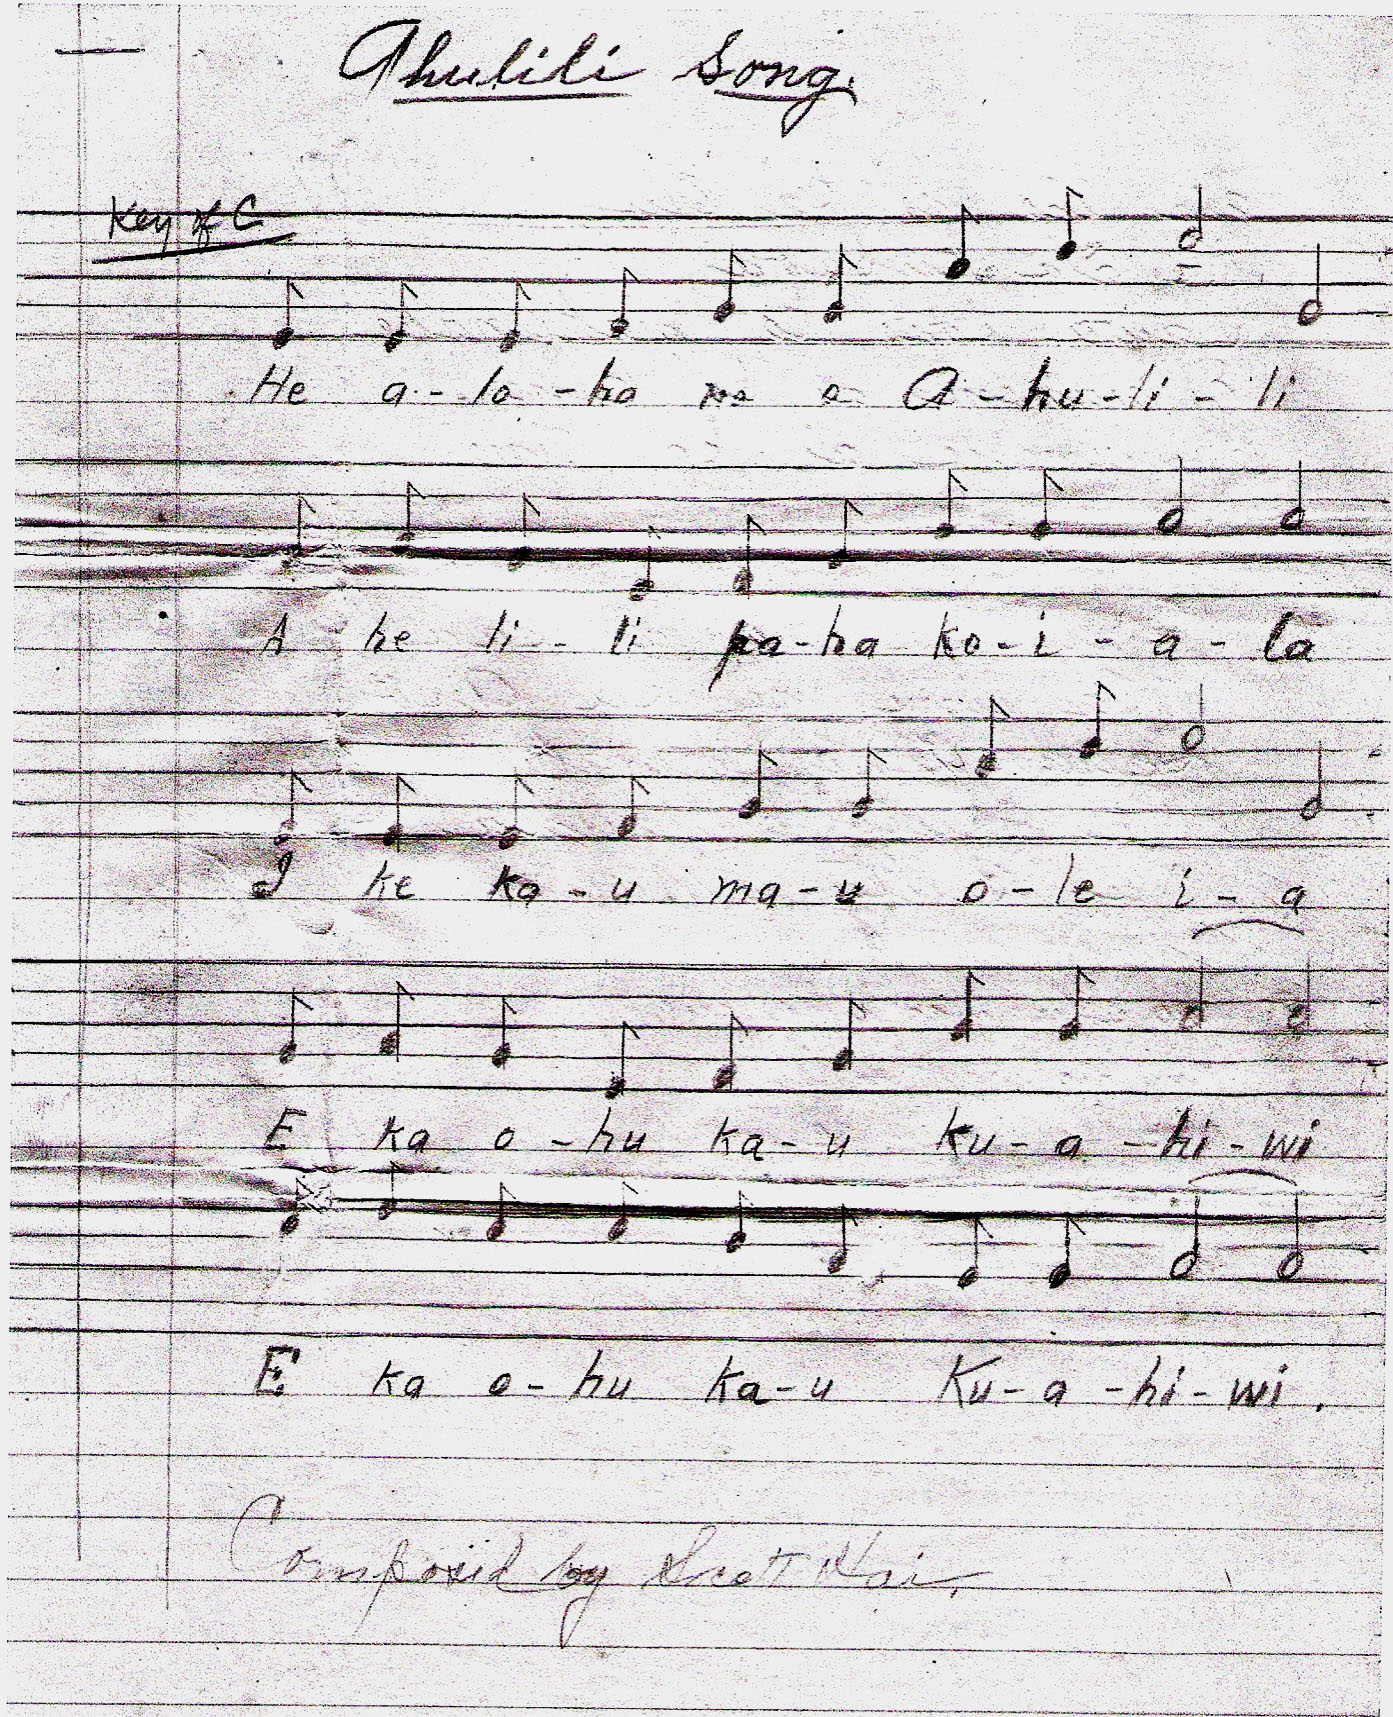 Ahulili Song.
Key of C
He a-lo-ha no o A-hu-li-li
A he li-li pa-ha ko-i-a-la
I ke ka-u ma-u o-le i-a
E ka o-hu ka-u ku-a-hi-wi
E ka o-hu ka-u Ku-a-hi-wi.
Composed by Scott Hai.